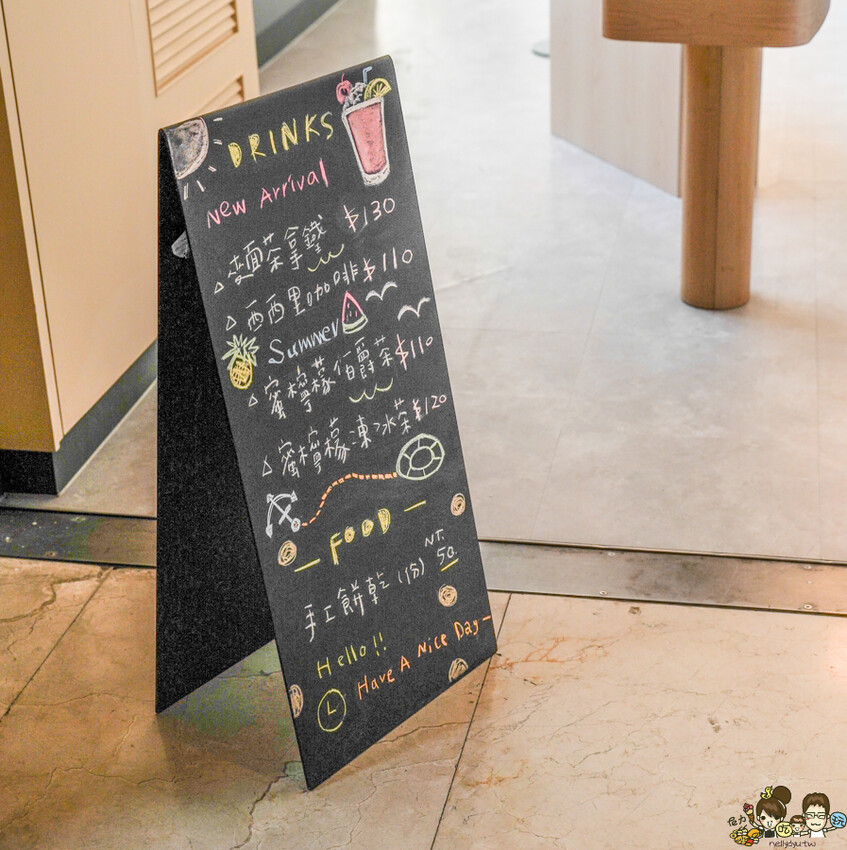 DRINKS
New Arrival
△麵茶拿鐵 $130
△西西里咖啡 $110
Summer
△蜜檸檬伯爵茶 $110
△蜜檸檬凍冰茶 $120
— FOOD —
手工餅乾(1份) NT. 50.
Hello!!
Have A Nice Day —
L
nellydyu.tw